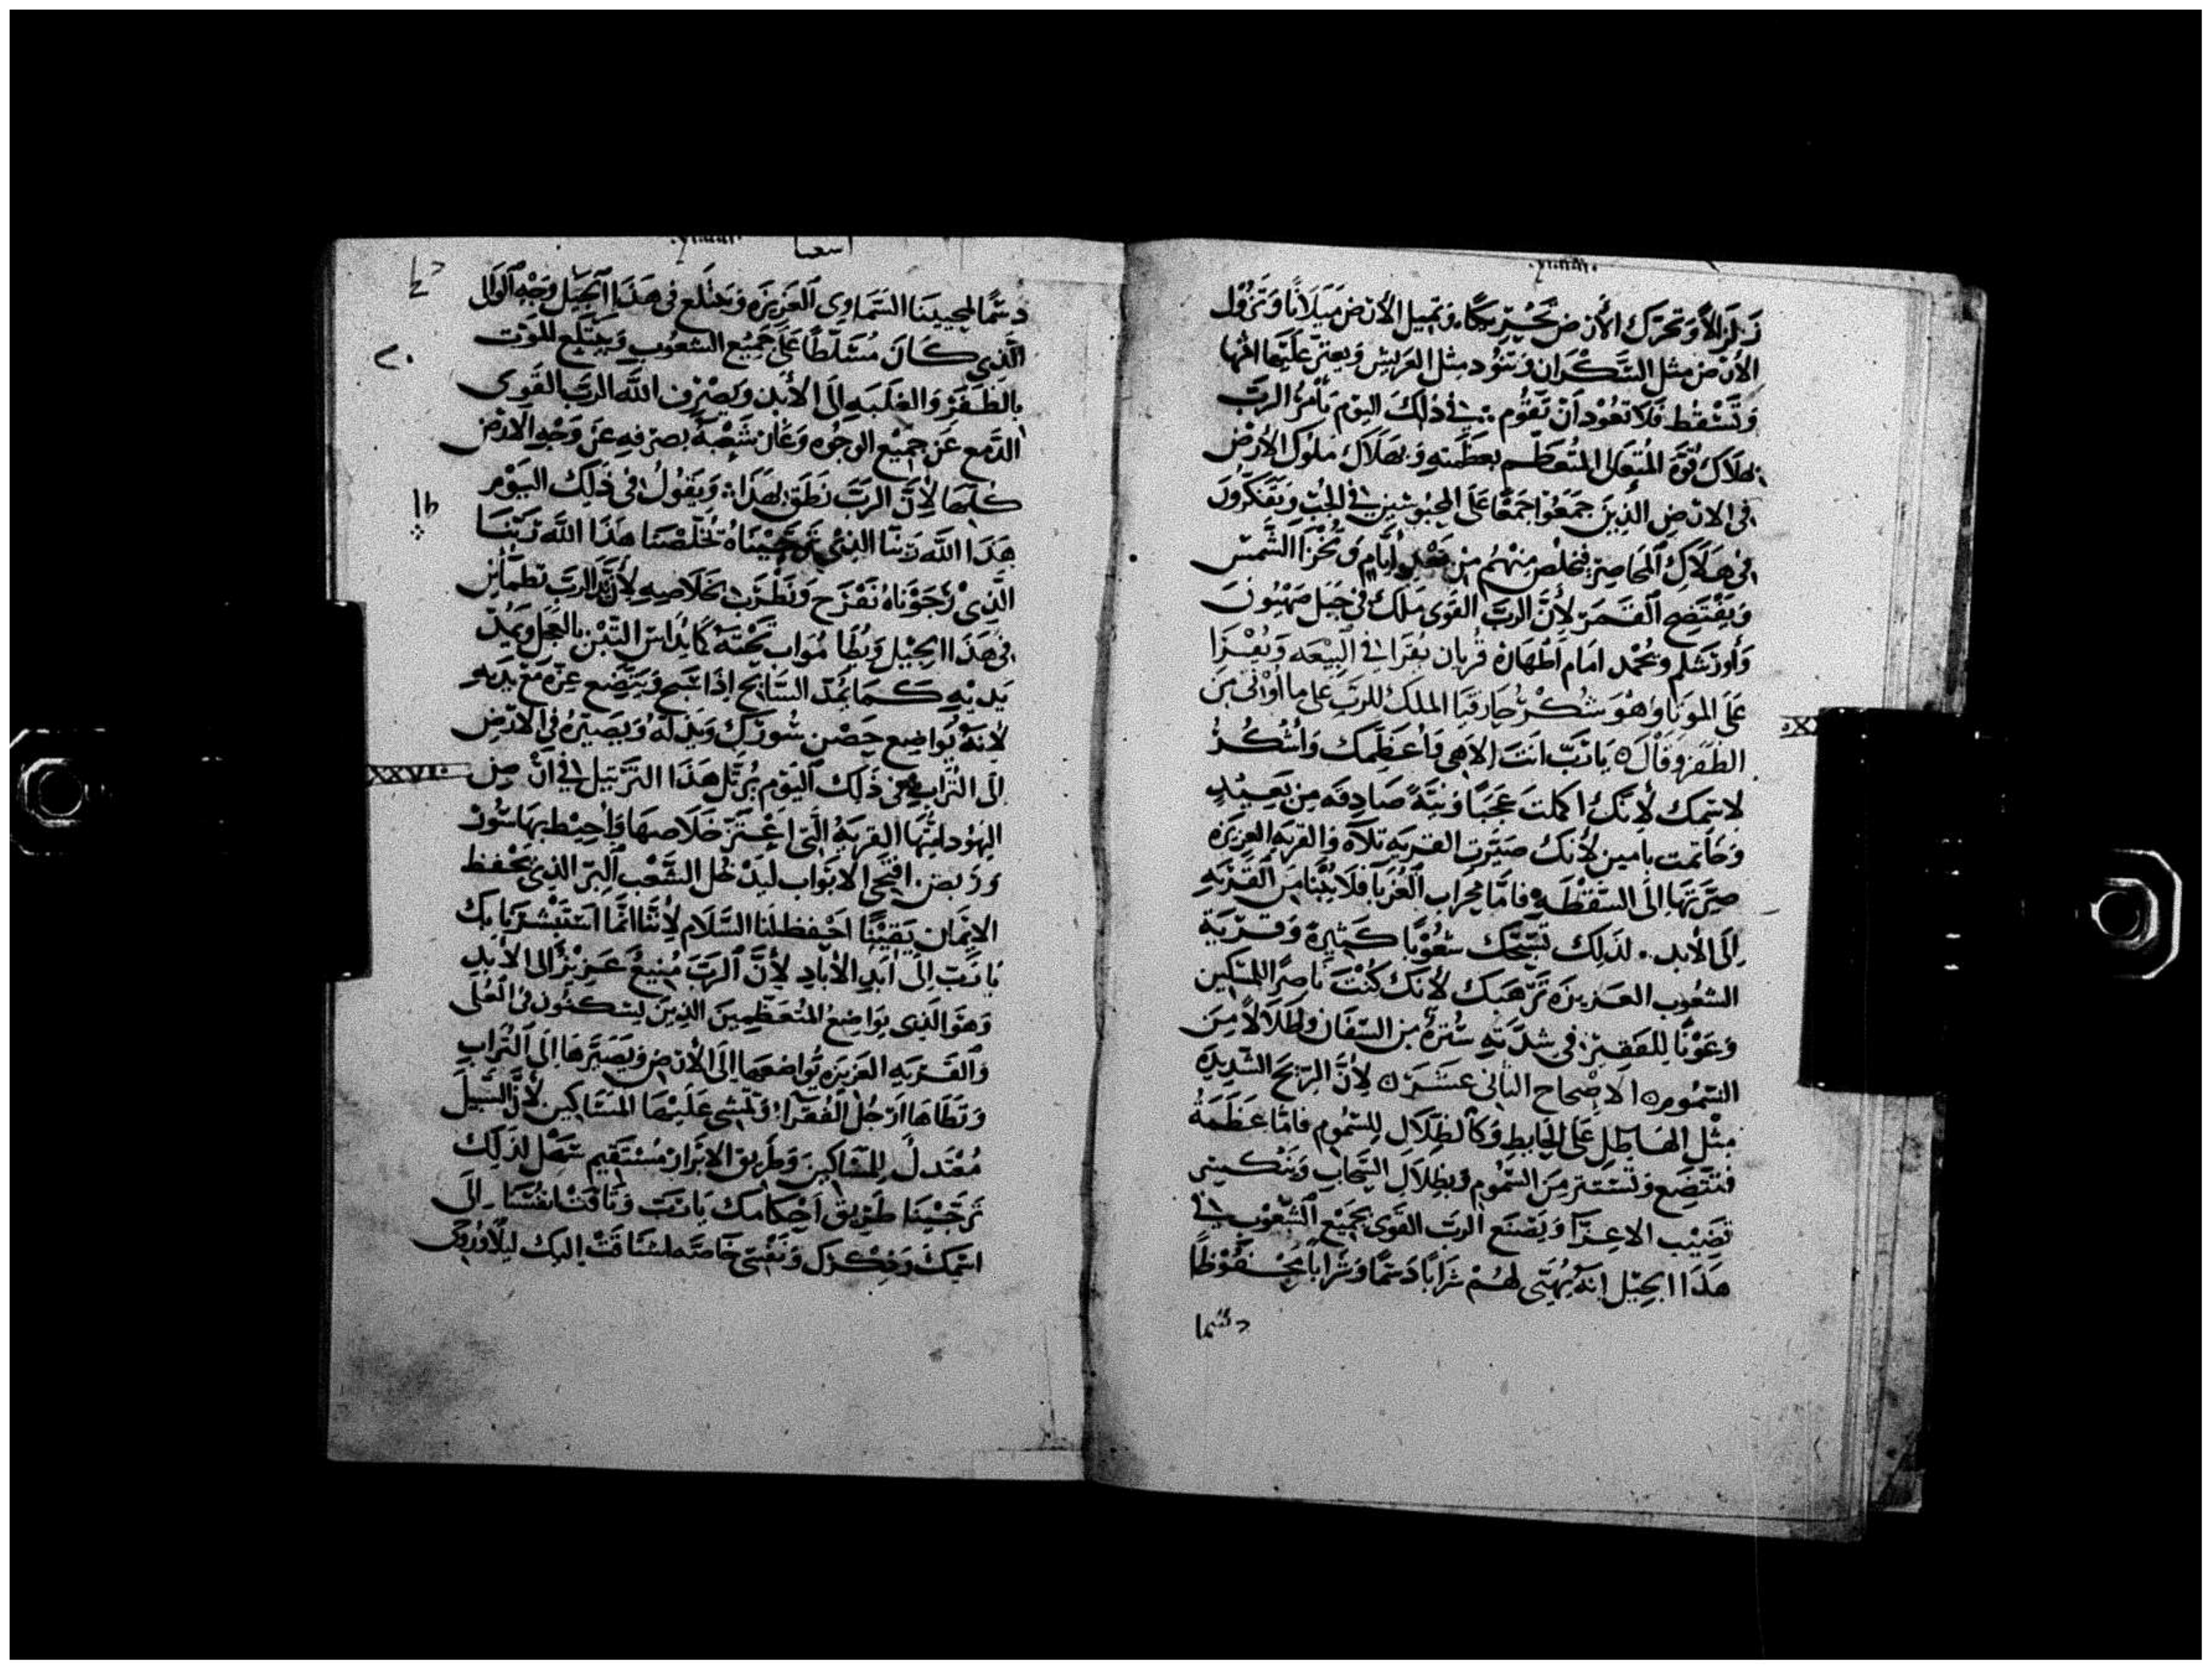 زلزالاً وتحرك الأرض تحريكاً وتميل الأرض ميلاناً وتزول
الأرض مثل السكران وتنود مثل العريش ويعتز عليها اثمها
وتسقط فلا تعود أن تقوم في ذلك اليوم يأمر الرب
بهلاك قوة المتعالى المتعظم بعظمته وبهلاك ملوك الأرض
في الارض الذين جمعوا جمعاً على المحبوسين في الجب ويفكرون
في هلاك المحاصر فيخلص منهم من بعد أيام وتخزا الشمس
ويفتضح القمر لأن الرب القوى ملك في جبل صهيون
وأورشلم ويمجد امام أطهاره قربان يقرا في البيعه ويعزا
على الموتا وهو شكر حارقيا الملك للرب على ما أوتى من
الظفر وقال يا رب انت الاهى وأعظمك وأشكر
لاسمك لأنك اكملت عجباً ونية صادقه من بعيد
وخاتمت بامين لأنك صيرت القريه تلاه والقريه العزيزه
صيرتها إلى السقطه فاما محراب الغربا فلا يبنا من القريه
إلى الأبد لذلك تسبحك شعوباً كثيرة وقرية
الشعوب العزيزه ترهبك لأنك كنت ناصراً للمسكين
وعوناً للفقير في شدته سترة من السفان وظلالاً من
السموم الاصحاح الثانى عشر لأن الريح الشديده
مثل الهاطل على الحايط وكالظلال للسموم فاما عظمة
فتتضع وتستتر من السموم وبظلال السحاب وينكسر
قضيب الاعزآ ويصنع الرب القوى بجميع الشعوب في
هذا الجيل انه يهيى لهم شراباً دسماً وشراباً محفوظاً
دسما
اسعيا
دسماً لمحيينا السماوى العزيزه ويبتلع في هذا الجيل وجه الوال
الذي كان مسلطاً على جميع الشعوب ويبتلع للموت
٢٠
بالظفر والغلبه إلى الأبد ويصرف الله الرب القوى
الدمع عن جميع الوجوه وعار شعبه يصرفه عن وجه الارض
كلها لأن الرب نطق بهذا ويقول في ذلك اليوم
هذا الله ربنا الذي ترجيناه تخلصنا هذا الله ربنا
الذي رجوناه نفرح ونطرب بخلاصه لأن يد الرب تطمأن
في هذا الجيل ويطا مواب تحته كما يداس التبن بالعجل ويمد
يديه كما يمد السابح إذا سبح ويتضع عزه مع يديه
لانه يواضع حصن سورك ويدله ويصيره في الارض
الى التراب في ذلك اليوم يرتل هذا الترتيل في ارض
اليهود ايتها القريه التي اعتز خلاصها واحيط بها سور
وربض افتحى الابواب ليدخل الشعب البر الذي يحفظ
الايمان يقيناً احفظ لنا السلام لأننا انما استبشرنا بك
يا رب إلى ابد الأباد لأن الرب منيع عزيز الى الأبد
وهو الذى يواضع المتعظمين الذين يسكنون في العلى
والقريه العزيزه يواضعها إلى الأرض ويصيرها إلى التراب
وتطاها ارجل الفقرآ وتمشى عليها المساكين لأن السبيل
معتدل للمساكين وطريق الابرار مستقيم سهل لذلك
ترجينا طريق احكامك يا رب وتاقت انفسنا إلى
اسمك وذكرك ونفسى خاصة اشتاقت اليك ليلاً وروحى